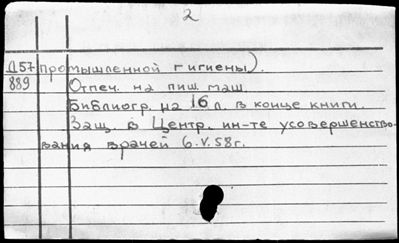 2
Д57 промышленной гигиены).
889 Отпеч. на пиш. маш.
Библиогр. на 16 л. в конце книги.
Защ. в Центр. ин-те усовершенство-
вания врачей 6.V.58г.